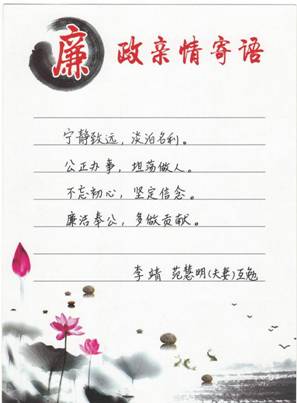 廉政亲情寄语
宁静致远，淡泊名利。
公正办事，坦荡做人。
不忘初心，坚定信念。
廉洁奉公，多做贡献。
李靖 范慧明(夫妻)互勉